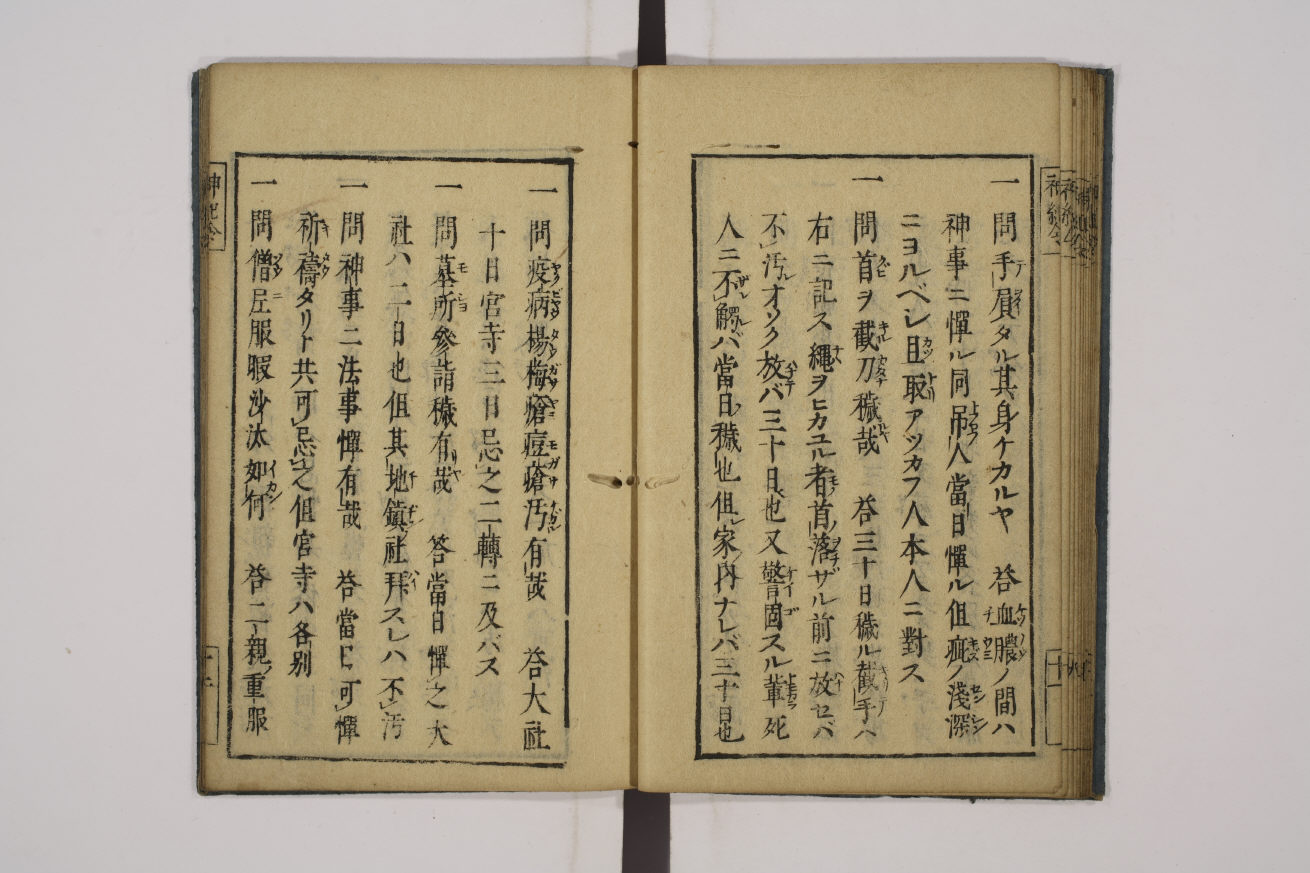 一 問手屓タル其身ケカルヤ 荅血膿ノ間ハ
神事ニ憚ル同吊人當日憚ル但疵ノ淺深
ニヨルベシ且取アツカフ人本人ニ對ス
一 問首ヲ截刀穢哉 荅三十日穢ル截手ハ
右ニ記ス繩ヲヒカユル者首落ザル前ニ放セバ
不汚オソク放バ三十日也又警固スル輩死
人ニ不觸ハ當日穢也但家内ナレバ三十日也
一 問疫病楊梅瘡痘瘡汚有哉 荅大社
十日宮寺三日忌之二轉ニ及バス
一 問墓所參詣穢有哉 答當日憚之大
社ハ二十日也但其地鎮社拜スレハ不汚
一 問神事ニ法事憚有哉 荅當日可憚
祈禱タリト共可忌之但宮寺ハ各別
一 問僧尼服暇沙汰如何 荅二親ノ重服